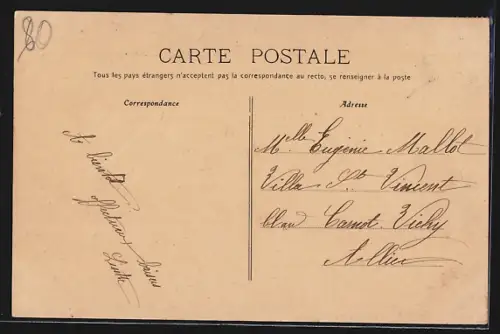 80
CARTE POSTALE
Tous les pays étrangers n'acceptent pas la correspondance au recto, se renseigner à la poste
Correspondance
A bientôt
affectueux baisers
Adresse
Melle Eugénie Mallot
Villa St Vincent
Carnot. Vichy
Allier